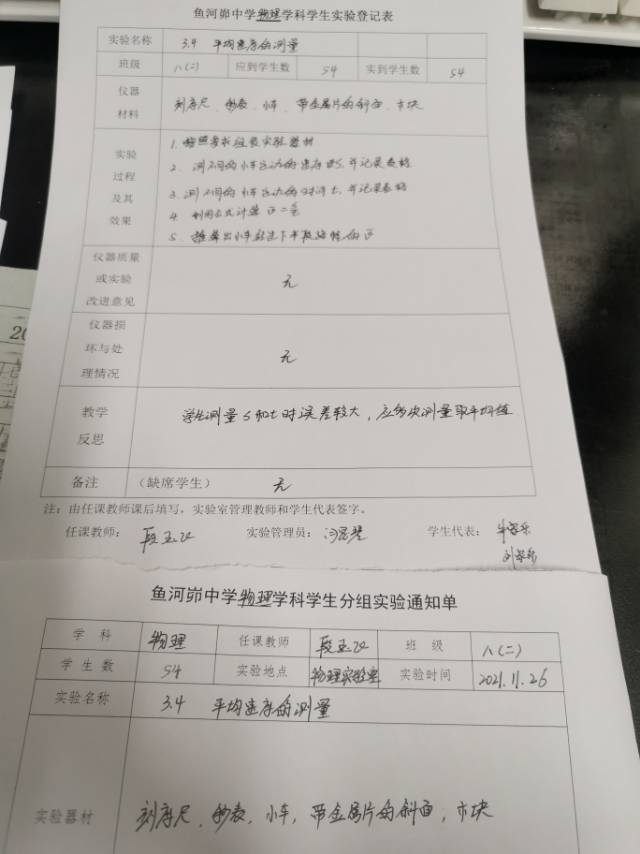 鱼河峁中学物理学科学生实验登记表
实验名称 3.4 平均速度的测量
班级 八(二) 应到学生数 54 实到学生数 54
仪器材料 刻度尺、秒表、小车、带金属片的斜面、木块
实验过程及其效果
1. 按照要求组装实验器材
2. 测不同的小车运动的 S, 并记录表格
3. 测不同的小车运动的时间 t, 并记录表格
4. 利用公式计算
5. 推算出小车通过下半段路程的
仪器质量或实验改进意见 无
仪器损坏与处理情况 无
教学反思 学生测量 S 和 t 时误差较大，应多次测量取平均值
备注 （缺席学生） 无
注：由任课教师课后填写，实验室管理教师和学生代表签字。
任课教师： 段玉 实验管理员： 学生代表：
鱼河峁中学物理学科学生分组实验通知单
学科 物理 任课教师 段玉 班级 八(二)
学生数 54 实验地点 物理实验室 实验时间 2021.11.26
实验名称 3.4 平均速度的测量
实验器材 刻度尺、秒表、小车、带金属片的斜面、木块